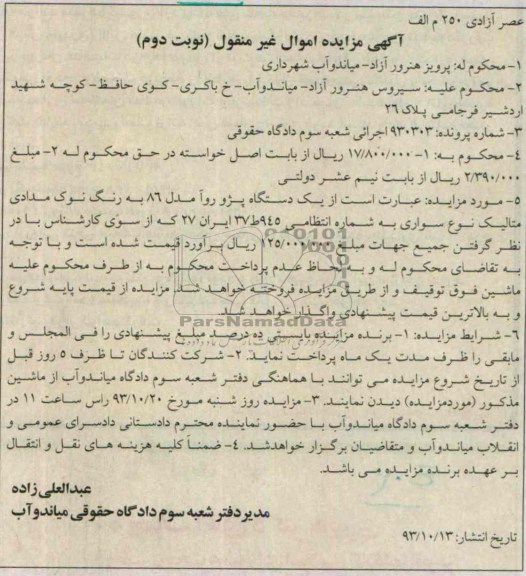 عصر آزادی ۲۵۰ م الف
آگهی مزایده اموال غیر منقول (نوبت دوم)
۱- محکوم له: پرویز هنرور آزاد- میاندوآب شهرداری
۲- محکوم علیه: سیروس هنرور آزاد- میاندوآب- خ باکری- کوی حافظ- کوچه شهید
اردشیر فرجامی پلاک ۲۶
۳- شماره پرونده: ۹۳۰۳۰۳ اجرائی شعبه سوم دادگاه حقوقی
۴- محکوم به: ۱- ۱۷/۸۰۰/۰۰۰ ریال از بابت اصل خواسته در حق محکوم له ۲- مبلغ
۲/۳۹۰/۰۰۰ ریال از بابت نیم عشر دولتی
۵- مورد مزایده: عبارت است از یک دستگاه پژو روآ مدل ۸۶ به رنگ نوک مدادی
متالیک نوع سواری به شماره انتظامی ۹۴۵ط۳۷ ایران ۲۷ که از سوی کارشناس با در
نظر گرفتن جمیع جهات مبلغ ۱۲۵/۰۰۰/۰۰۰ ریال برآورد قیمت شده است و با توجه
به تقاضای محکوم له و به لحاظ عدم پرداخت محکوم به از طرف محکوم علیه
ماشین فوق توقیف و از طریق مزایده فروخته خواهد شد. مزایده از قیمت پایه شروع
و به بالاترین قیمت پیشنهادی واگذار خواهد شد
ParsNamadData
۶- شرایط مزایده: ۱- برنده مزایده بایستی ده درصد مبلغ پیشنهادی را فی المجلس و
مابقی را ظرف مدت یک ماه پرداخت نماید. ۲- شرکت کنندگان تا ظرف ۵ روز قبل
از تاریخ شروع مزایده می توانند با هماهنگی دفتر شعبه سوم دادگاه میاندوآب از ماشین
مذکور (موردمزایده) دیدن نمایند. ۳- مزایده روز شنبه مورخ ۹۳/۱۰/۲۰ راس ساعت ۱۱ در
دفتر شعبه سوم دادگاه میاندوآب با حضور نماینده محترم دادستانی دادسرای عمومی و
انقلاب میاندوآب و متقاضیان برگزار خواهدشد. ۴- ضمناً کلیه هزینه های نقل و انتقال
بر عهده برنده مزایده می باشد.
عبدالعلی زاده
مدیر دفتر شعبه سوم دادگاه حقوقی میاندوآب
تاریخ انتشار: ۹۳/۱۰/۱۳